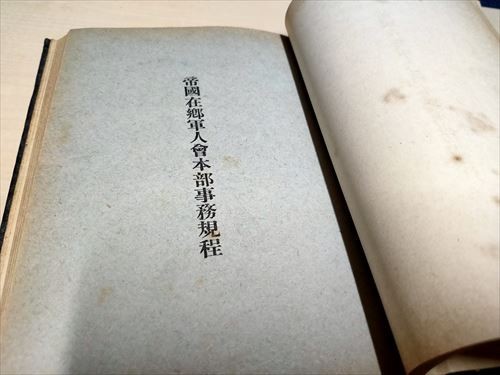 帝國在鄕軍人會本部事務規程